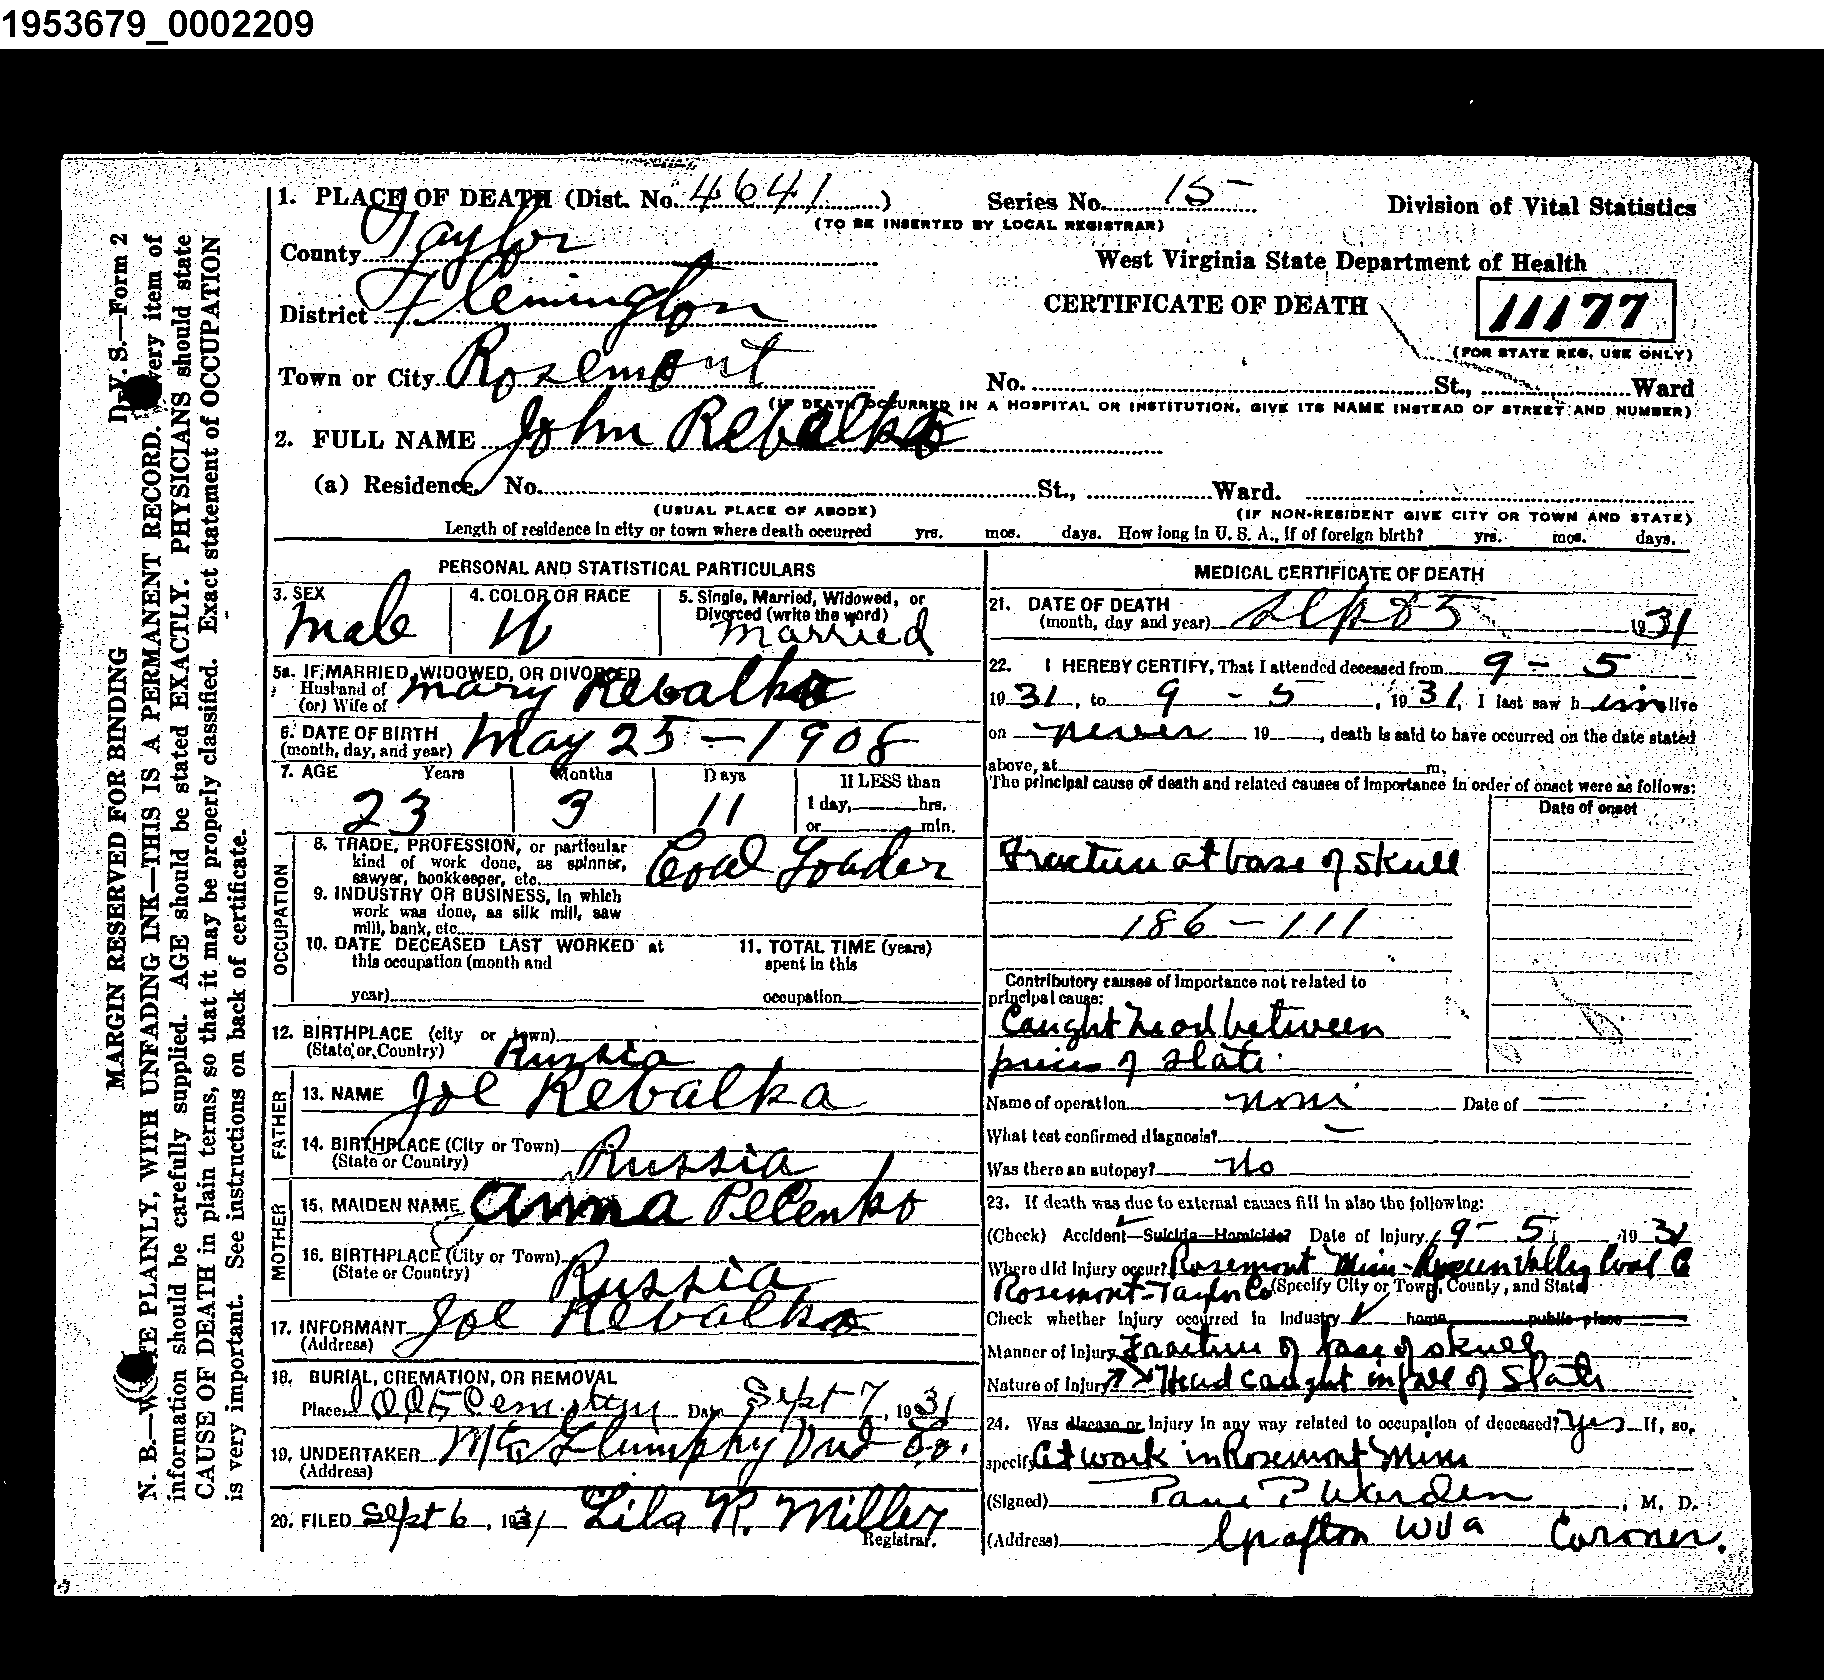 1953679_0002209
1. PLACE OF DEATH (Dist. No. 4641) Series No. 15 Division of Vital Statistics
(TO BE INSERTED BY LOCAL REGISTRAR)
County Taylor
West Virginia State Department of Health
District Flemington
CERTIFICATE OF DEATH 11177
(FOR STATE REG. USE ONLY)
Town or City Rosemont No. St., Ward
(IF DEATH OCCURRED IN A HOSPITAL OR INSTITUTION, GIVE ITS NAME INSTEAD OF STREET AND NUMBER)
2. FULL NAME John Rebalko
(a) Residence. No. St., Ward.
(USUAL PLACE OF ABODE) (IF NON-RESIDENT GIVE CITY OR TOWN AND STATE)
Length of residence in city or town where death occurred yrs. mos. days. How long in U. S. A., if of foreign birth? yrs. mos. days.
PERSONAL AND STATISTICAL PARTICULARS
3. SEX 4. COLOR OR RACE 5. Single, Married, Widowed, or
Divorced (write the word)
Male W Married
5a. IF MARRIED, WIDOWED, OR DIVORCED
Husband of
(or) Wife of Mary Rebalko
6. DATE OF BIRTH
(month, day, and year) May 25 - 1908
7. AGE Years Months Days If LESS than
23 3 11 1 day, hrs.
or min.
OCCUPATION
8. TRADE, PROFESSION, or particular
kind of work done, as spinner,
sawyer, bookkeeper, etc. Coal Loader
9. INDUSTRY OR BUSINESS, in which
work was done, as silk mill, saw
mill, bank, etc.
10. DATE DECEASED LAST WORKED at 11. TOTAL TIME (years)
this occupation (month and spent in this
year) occupation
12. BIRTHPLACE (city or town)
(State or Country) Russia
FATHER
13. NAME Joe Rebalka
14. BIRTHPLACE (City or Town)
(State or Country) Russia
MOTHER
15. MAIDEN NAME Anna Pelenko
16. BIRTHPLACE (City or Town)
(State or Country) Russia
17. INFORMANT Joe Rebalko
(Address)
18. BURIAL, CREMATION, OR REMOVAL
Place Cemetery Date Sept 7, 1931
19. UNDERTAKER Und Co.
(Address)
20. FILED Sept 6, 1931 Lila R. Miller
Registrar.
MEDICAL CERTIFICATE OF DEATH
21. DATE OF DEATH
(month, day and year) Sept 5 1931
22. I HEREBY CERTIFY, That I attended deceased from 9 - 5
1931, to 9 - 5, 1931, I last saw him alive
on never 19 , death is said to have occurred on the date stated
above, at m.
The principal cause of death and related causes of importance in order of onset were as follows:
Date of onset
Fracture at base of skull
186 - 111
Contributory causes of importance not related to
principal cause:
Caught head between
pieces of slate.
Name of operation none Date of —
What test confirmed diagnosis? —
Was there an autopsy? No
23. If death was due to external causes fill in also the following:
(Check) Accident—Suicide—Homicide? Date of Injury 9 - 5, 1931
Where did injury occur? Rosemont Mine - Valley Coal C
Rosemont - Taylor Co (Specify City or Town, County, and State)
Check whether injury occurred in Industry home public place
Manner of injury Fracture of base of skull
Nature of Injury Head caught in fall of Slate
24. Was disease or injury in any way related to occupation of deceased? Yes If, so,
specify At work in Rosemont Mine
(Signed) Paul P Warden, M. D.
(Address) Grafton W Va Coroner.
D. V. S.—Form 2
MARGIN RESERVED FOR BINDING
N. B.—WRITE PLAINLY, WITH UNFADING INK—THIS IS A PERMANENT RECORD. Every item of
information should be carefully supplied. AGE should be stated EXACTLY. PHYSICIANS should state
CAUSE OF DEATH in plain terms, so that it may be properly classified. Exact statement of OCCUPATION
is very important. See instructions on back of certificate.